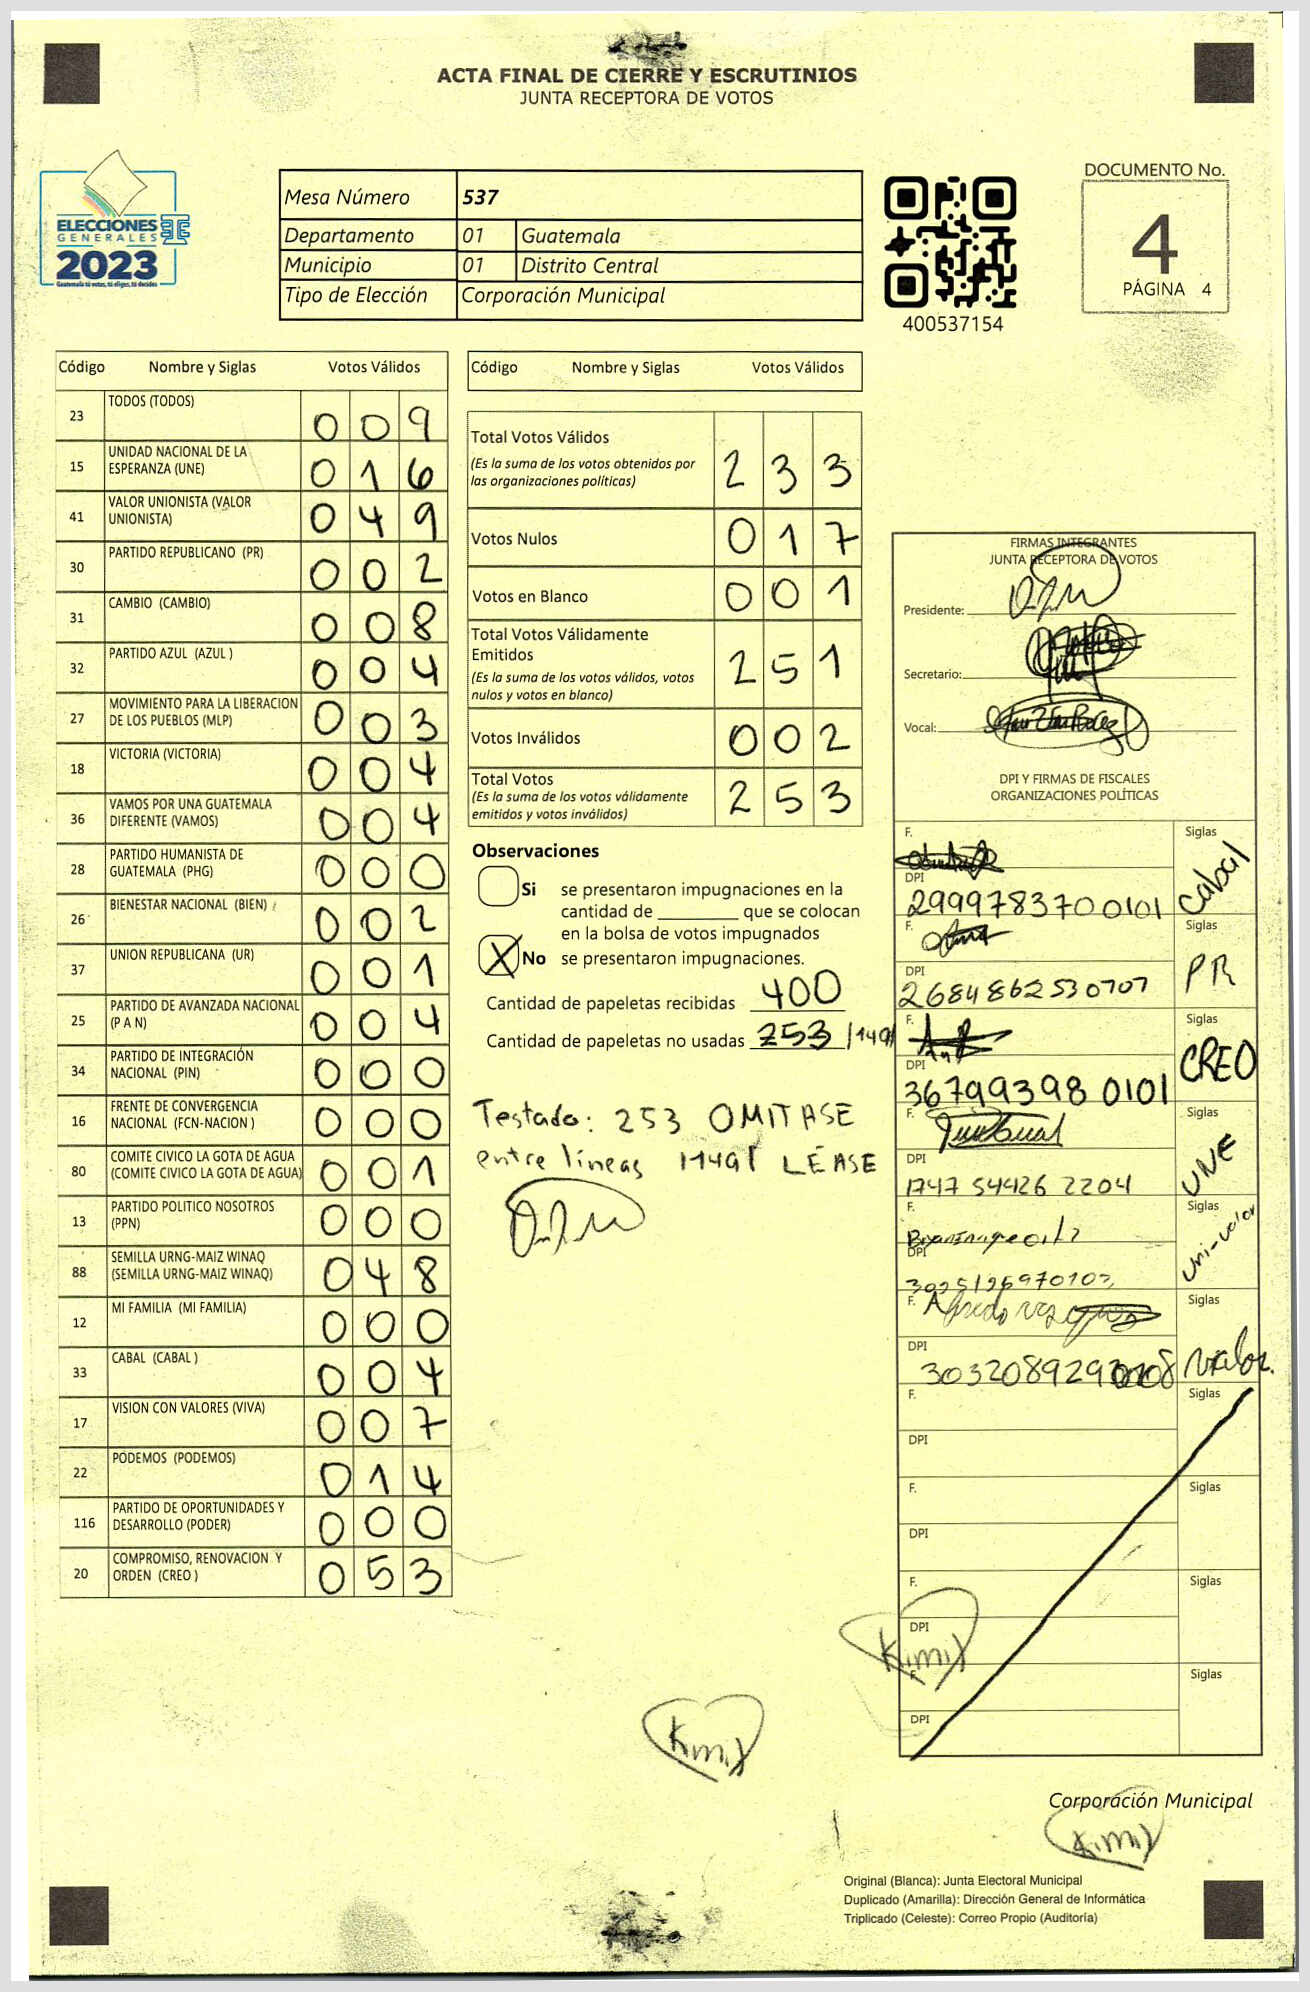 ACTA FINAL DE CIERRE Y ESCRUTINIOS
JUNTA RECEPTORA DE VOTOS
ELECCIONES
GENERALES
2023
Guatemala tú votas, tú eliges, tú decides
Mesa Número 537
Departamento 01 Guatemala
Municipio 01 Distrito Central
Tipo de Elección Corporación Municipal
400537154
DOCUMENTO No.
4
PÁGINA 4
Código Nombre y Siglas Votos Válidos
23 TODOS (TODOS) 0 0 9
15 UNIDAD NACIONAL DE LA
ESPERANZA (UNE) 0 1 6
41 VALOR UNIONISTA (VALOR
UNIONISTA) 0 4 9
30 PARTIDO REPUBLICANO (PR) 0 0 2
31 CAMBIO (CAMBIO) 0 0 8
32 PARTIDO AZUL (AZUL ) 0 0 4
27 MOVIMIENTO PARA LA LIBERACION
DE LOS PUEBLOS (MLP) 0 0 3
18 VICTORIA (VICTORIA) 0 0 4
36 VAMOS POR UNA GUATEMALA
DIFERENTE (VAMOS) 0 0 4
28 PARTIDO HUMANISTA DE
GUATEMALA (PHG) 0 0 0
26 BIENESTAR NACIONAL (BIEN) 0 0 2
37 UNION REPUBLICANA (UR) 0 0 1
25 PARTIDO DE AVANZADA NACIONAL
(P A N) 0 0 4
34 PARTIDO DE INTEGRACIÓN
NACIONAL (PIN) 0 0 0
16 FRENTE DE CONVERGENCIA
NACIONAL (FCN-NACION ) 0 0 0
80 COMITE CIVICO LA GOTA DE AGUA
(COMITE CIVICO LA GOTA DE AGUA) 0 0 1
13 PARTIDO POLITICO NOSOTROS
(PPN) 0 0 0
88 SEMILLA URNG-MAIZ WINAQ
(SEMILLA URNG-MAIZ WINAQ) 0 4 8
12 MI FAMILIA (MI FAMILIA) 0 0 0
33 CABAL (CABAL ) 0 0 4
17 VISION CON VALORES (VIVA) 0 0 7
22 PODEMOS (PODEMOS) 0 1 4
116 PARTIDO DE OPORTUNIDADES Y
DESARROLLO (PODER) 0 0 0
20 COMPROMISO, RENOVACION Y
ORDEN (CREO ) 0 5 3
Código Nombre y Siglas Votos Válidos
Total Votos Válidos
(Es la suma de los votos obtenidos por
las organizaciones políticas) 2 3 3
Votos Nulos 0 1 7
Votos en Blanco 0 0 1
Total Votos Válidamente
Emitidos
(Es la suma de los votos válidos, votos
nulos y votos en blanco) 2 5 1
Votos Inválidos 0 0 2
Total Votos
(Es la suma de los votos válidamente
emitidos y votos inválidos) 2 5 3
Observaciones
Si se presentaron impugnaciones en la
cantidad de ________ que se colocan
en la bolsa de votos impugnados
X No se presentaron impugnaciones.
Cantidad de papeletas recibidas 400
Cantidad de papeletas no usadas 253 /149/
Testado: 253 OMITASE
entre líneas /149/ LÉASE
FIRMAS INTEGRANTES
JUNTA RECEPTORA DE VOTOS
Presidente:
Secretario:
Vocal:
DPI Y FIRMAS DE FISCALES
ORGANIZACIONES POLÍTICAS
F. Siglas
DPI Cabal
2999783700101
F. Siglas
DPI PR
2684862530707
F. Siglas
DPI CREO
36799398 0101
F. Siglas
DPI UNE
1747 54426 2204
F. Siglas
DPI uni-valor
F. Alfredo Siglas
DPI valor.
F. Siglas
DPI
F. Siglas
DPI
F. Siglas
DPI
Kimi
F. Siglas
DPI
Kimi
Corporación Municipal
Kimi
Original (Blanca): Junta Electoral Municipal
Duplicado (Amarilla): Dirección General de Informática
Triplicado (Celeste): Correo Propio (Auditoría)